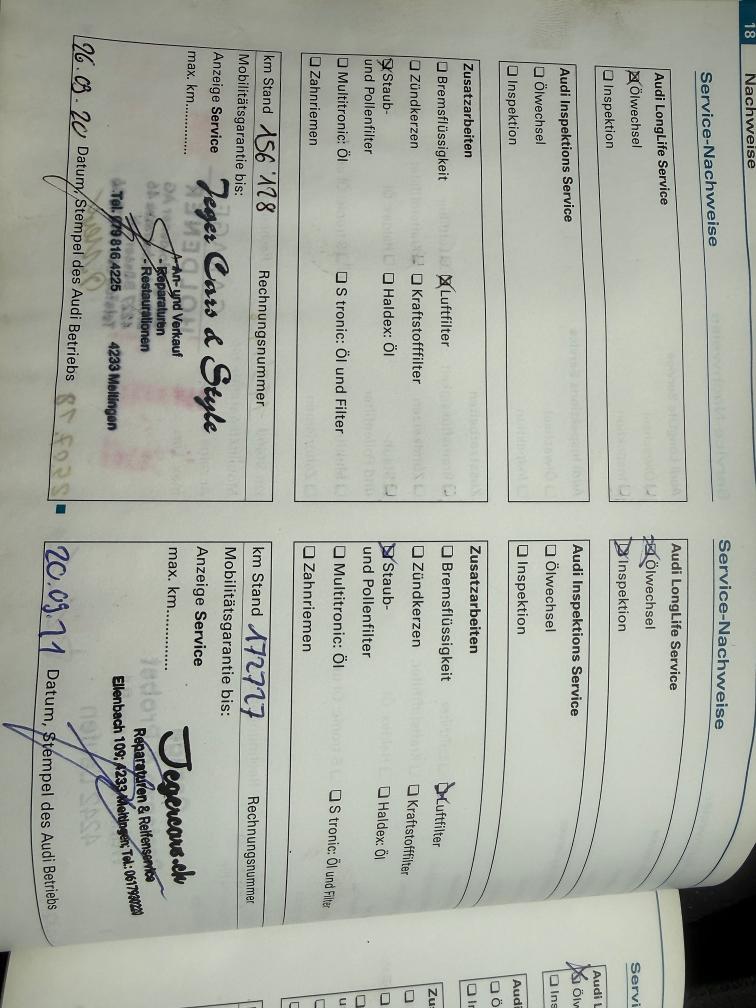 18 Nachweise
Service-Nachweise
Audi LongLife Service
Ölwechsel
Inspektion
Audi Inspektions Service
Ölwechsel
Inspektion
Zusatzarbeiten
Bremsflüssigkeit Luftfilter
Zündkerzen Kraftstofffilter
Staub- Haldex: Öl
und Pollenfilter
Multitronic: Öl S tronic: Öl und Filter
Zahnriemen
km Stand 156'128 Rechnungsnummer
Mobilitätsgarantie bis:
Anzeige Service
max. km.............
Jeger Cars & Style
- An- und Verkauf
- Reparaturen
- Restaurationen
Tel. 079 816 4225 4233 Meltingen
26.09.20 Datum, Stempel des Audi Betriebs
Service-Nachweise
Audi LongLife Service
Ölwechsel
Inspektion
Audi Inspektions Service
Ölwechsel
Inspektion
Zusatzarbeiten
Bremsflüssigkeit Luftfilter
Zündkerzen Kraftstofffilter
Staub- Haldex: Öl
und Pollenfilter
Multitronic: Öl S tronic: Öl und Filter
Zahnriemen
km Stand 172727 Rechnungsnummer
Mobilitätsgarantie bis:
Anzeige Service
max. km.............
Jegercars.ch
Reparaturen & Reifenservice
Eilenbach 109; 4233 Meltingen; Tel.: 0617930220
20.09.11 Datum, Stempel des Audi Betriebs
Servi
Audi L
Ölw
Ins
Audi
Ö
In
Zu